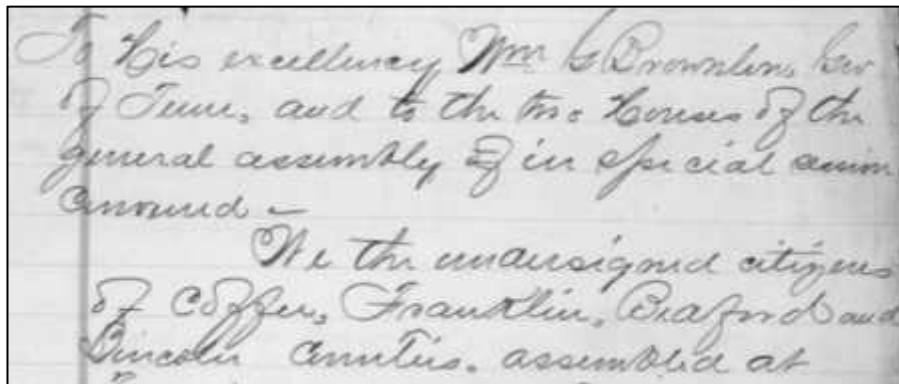 To His excellency Wm G Brownlow, Gov
of Tenn, and to the two Houses of the
general assembly of in special session
convened –
We the undersigned citizens
of Coffee, Franklin, Bedford and
Lincoln Counties. assembled at